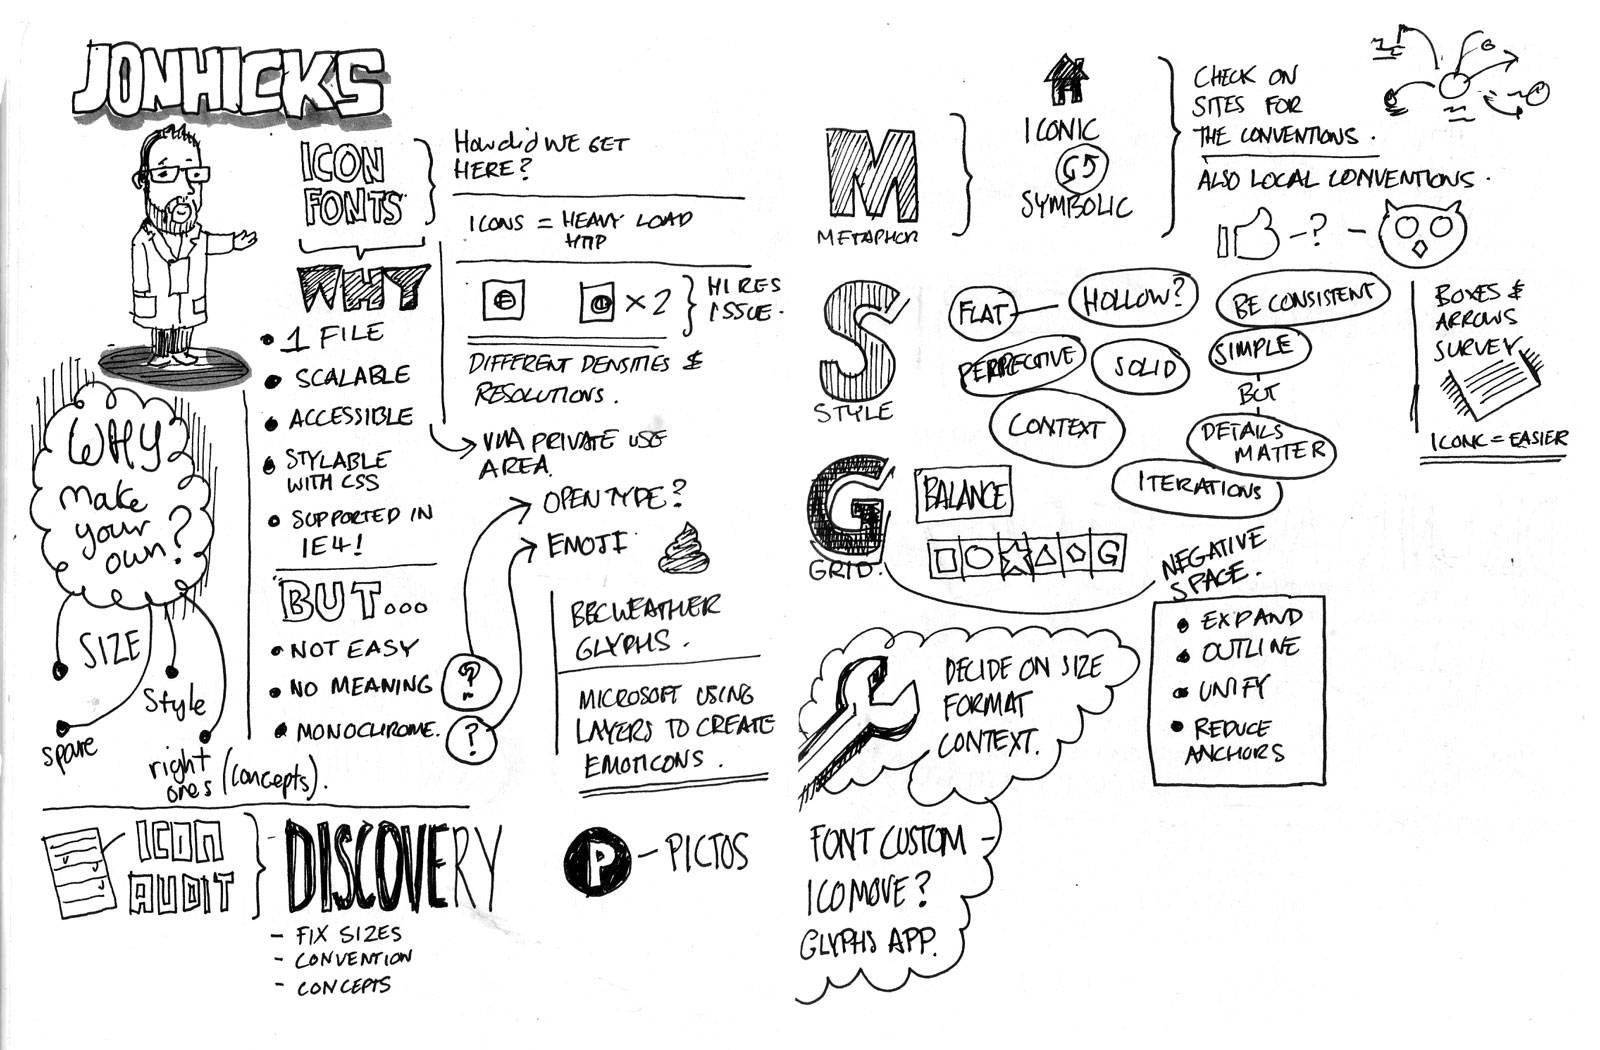 JONHICKS
ICON
FONTS
How did WE GET
HERE?
ICONS = HEAVY LOAD
HTTP
×2
HIRES
ISSUE.
DIFFERENT DENSITIES &
RESOLUTIONS.
WHY
1 FILE
SCALABLE
ACCESSIBLE
STYLABLE
WITH CSS
SUPPORTED IN
IE4!
VIA PRIVATE USE
AREA.
BUT...
NOT EASY
NO MEANING
MONOCHROME.
?
?
OPENTYPE?
EMOJI
BBCWEATHER
GLYPHS.
MICROSOFT USING
LAYERS TO CREATE
EMOTICONS.
WHY
make
your
own?
SIZE
Style
spare
right
ones (concepts).
ICON
AUDIT
DISCOVERY
- FIX SIZES
- CONVENTION
- CONCEPTS
P - PICTOS
M
METAPHOR
ICONIC
SYMBOLIC
CHECK ON
SITES FOR
THE CONVENTIONS.
ALSO LOCAL CONVENTIONS.
- ? -
S
STYLE
FLAT
HOLLOW?
BE CONSISTENT
PERPECTIVE
SOLID
SIMPLE
BUT
CONTEXT
DETAILS
MATTER
ITERATIONS
BOXES &
ARROWS
SURVEY
ICONC = EASIER
G
GRID.
BALANCE
G
NEGATIVE
SPACE.
EXPAND
OUTLINE
UNIFY
REDUCE
ANCHORS
DECIDE ON SIZE
FORMAT
CONTEXT.
FONT CUSTOM -
ICOMOVE?
GLYPHS APP.